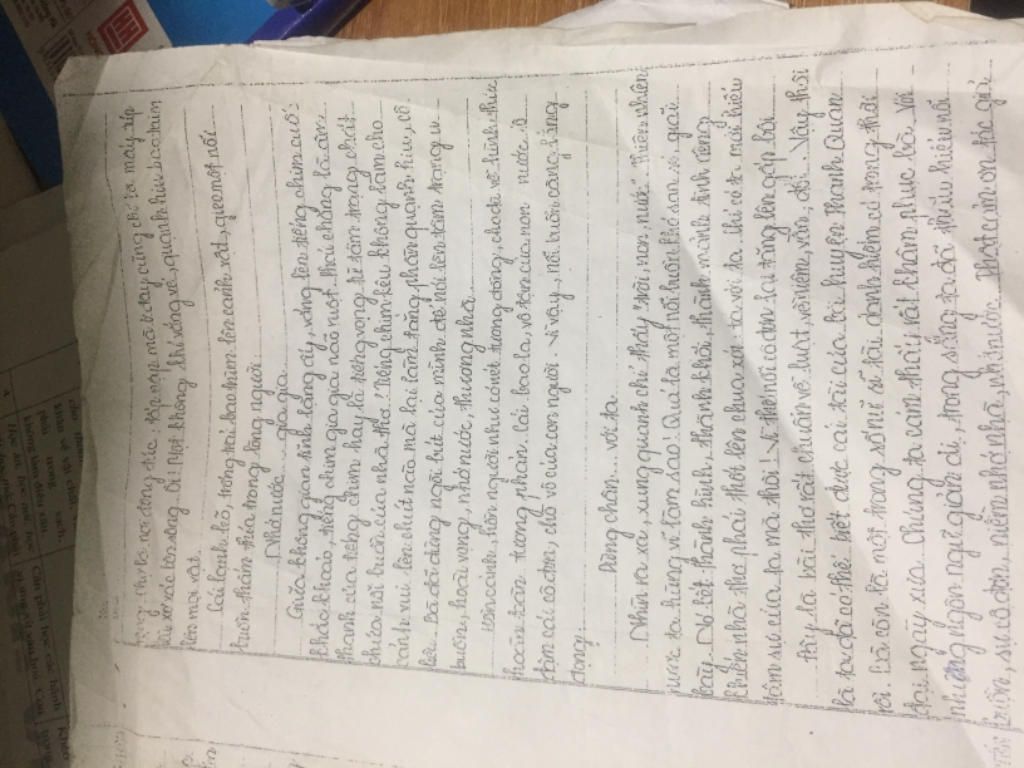 chỉ là nơi đông đúc, tấp nập mà nay cũng chỉ là mấy túp
lều xơ xác bên sông. Ôi! Một không khí vắng vẻ, quạnh hiu bao trùm
lên mọi vật.
Cái lạnh lẽo, trống trải bao trùm lên cảnh vật, gieo một nỗi
buồn thấm thía trong lòng người.
Nhớ nước... gia gia.
Giữa không gian tĩnh lặng ấy, vang lên tiếng chim cuốc
khắc khoải, tiếng chim gia gia não ruột. Phải chăng là âm
thanh của tiếng chim hay là tiếng vọng từ tâm trạng chất
chứa nỗi buồn của nhà thơ! Tiếng chim kêu không làm cho
cảnh vui lên chút nào mà lại làm tăng phần quạnh hiu, cô
liêu. Bà đã dùng ngòi bút của mình để nói lên tâm trạng u
buồn, hoài vọng, nhớ nước, thương nhà.
hồn cảnh, hồn người như có nét tương đồng, cho dù về hình thức
hoàn toàn tương phản. Cái bao la, vô tận của non nước, ô
đậm cái cô đơn, nhỏ vô của con người. Vì vậy, nỗi buồn càng lắng
đọng.
Dừng chân... với ta.
Nhìn ra xa, xung quanh chỉ thấy "trời, non, nước". Thiên nhiên
nước ta hùng vĩ làm sao! Quả là một nỗi buồn khó san sẻ, giãi
bày. Nó kết thành hình, thành khối, thành mảnh tình riêng
khiến nhà thơ phải thốt lên chua xót: ta với ta, chỉ có ta mới hiểu
tâm sự của ta mà thôi! Vì thế nỗi cô đơn lại tăng lên gấp bội.
Đây là bài thơ rất chuẩn về luật, về niêm, vần, đối. Vậy thôi
là ta đã có thể biết được cái tài của bà huyện Thanh Quan
rồi. Bà còn là một trong số nữ sĩ tài danh hiếm có trong thời
đại ngày xưa. Chúng ta cảm thấy rất thán phục bà. Với
những ngôn ngữ giản dị, trong sáng ta đã thấu hiểu nỗi
buồn, sự cô đơn, niềm nhớ nhà, nhớ nước. Thật cảm ơn tác giả